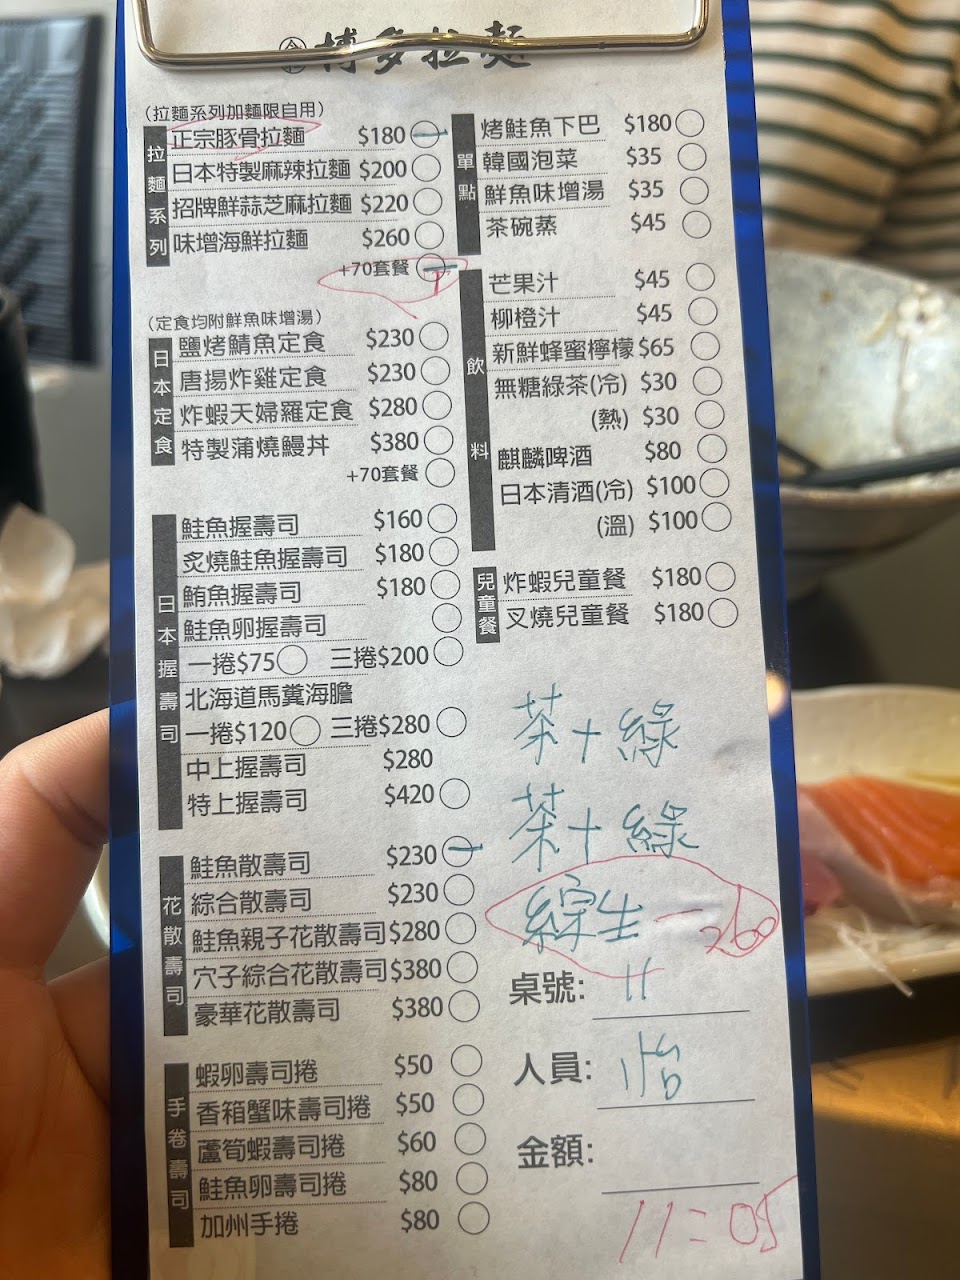 博多拉麵
(拉麵系列加麵限自用)
拉麵系列
正宗豚骨拉麵 $180
日本特製麻辣拉麵 $200
招牌鮮蒜芝麻拉麵 $220
味增海鮮拉麵 $260
+70套餐
(定食均附鮮魚味增湯)
日本定食
鹽烤鯖魚定食 $230
唐揚炸雞定食 $230
炸蝦天婦羅定食 $280
特製蒲燒鰻丼 $380
+70套餐
日本握壽司
鮭魚握壽司 $160
炙燒鮭魚握壽司 $180
鮪魚握壽司 $180
鮭魚卵握壽司
一捲$75 三捲$200
北海道馬糞海膽
一捲$120 三捲$280
中上握壽司 $280
特上握壽司 $420
花散壽司
鮭魚散壽司 $230
綜合散壽司 $230
鮭魚親子花散壽司 $280
穴子綜合花散壽司 $380
豪華花散壽司 $380
手卷壽司
蝦卵壽司捲 $50
香箱蟹味壽司捲 $50
蘆筍蝦壽司捲 $60
鮭魚卵壽司捲 $80
加州手捲 $80
單點
烤鮭魚下巴 $180
韓國泡菜 $35
鮮魚味增湯 $35
茶碗蒸 $45
飲料
芒果汁 $45
柳橙汁 $45
新鮮蜂蜜檸檬 $65
無糖綠茶(冷) $30
(熱) $30
麒麟啤酒 $80
日本清酒(冷) $100
(溫) $100
兒童餐
炸蝦兒童餐 $180
叉燒兒童餐 $180
茶+綠
茶+綠
綜生一 260
桌號: 11
人員: 怡
金額:
11:05